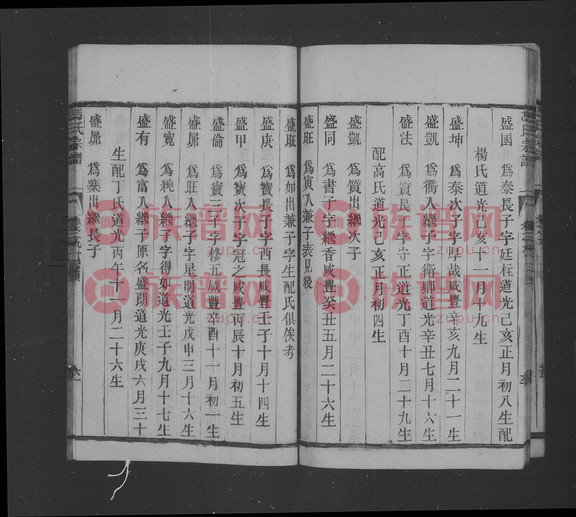 盛國 爲泰長子字廷柱道光己亥正月初八生配
楊氏道光己亥十一月十九生
盛坤 爲泰次子字厚哉咸豐辛亥九月二十一生
盛凱 爲衢入繼子字衛卿道光辛丑七月十六生
盛法 爲質長子字守正道光丁酉十月二十九生
配高氏道光己亥正月初四生
盛氙 爲質出繼次子
盛同 爲書子字繼香咸豐癸丑五月二十六生
盛旺 爲寅入兼子表見後
盛旺 爲如出兼子字生配氏俱俟考
盛庚 爲寶長子字酉長咸豐壬子十月十四生
盛甲 爲寶次子字冠之咸豐丙辰十月初五生
盛倫 爲寶三子字修五咸豐辛酉十一月初一生
盛昴 爲旺入繼子字星朗道光戊申三月十六生
盛寬 爲純入繼子字得如道光壬子九月十七生
盛有 爲富入繼子原名盛朋道光庚戌六月三十
生配丁氏道光丙午十一月二十六生
盛昴 爲寀出繼長子
馮氏宗譜
族谱网
zupu.cn
族谱网
zupu.cn
族谱网
zupu.cn
族谱网
zupu.cn